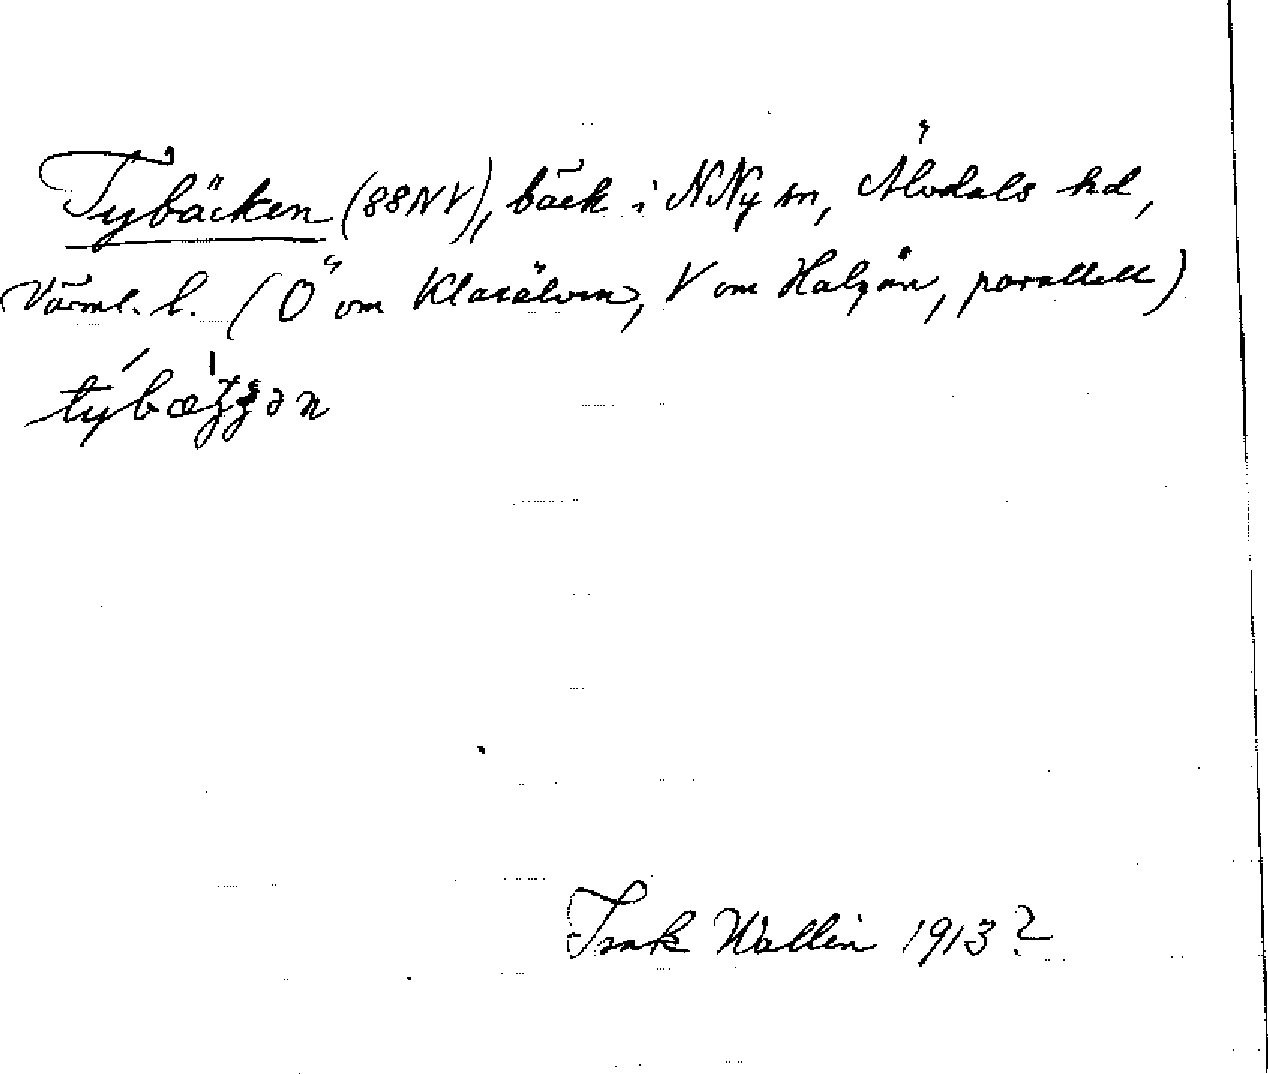 Tybäcken (88NV), bäck i NNy sn, Älvdals hd,
Värml. l. (Ö om Klarälven, V om Halgån, parallell)
Isak Wallin 1913?